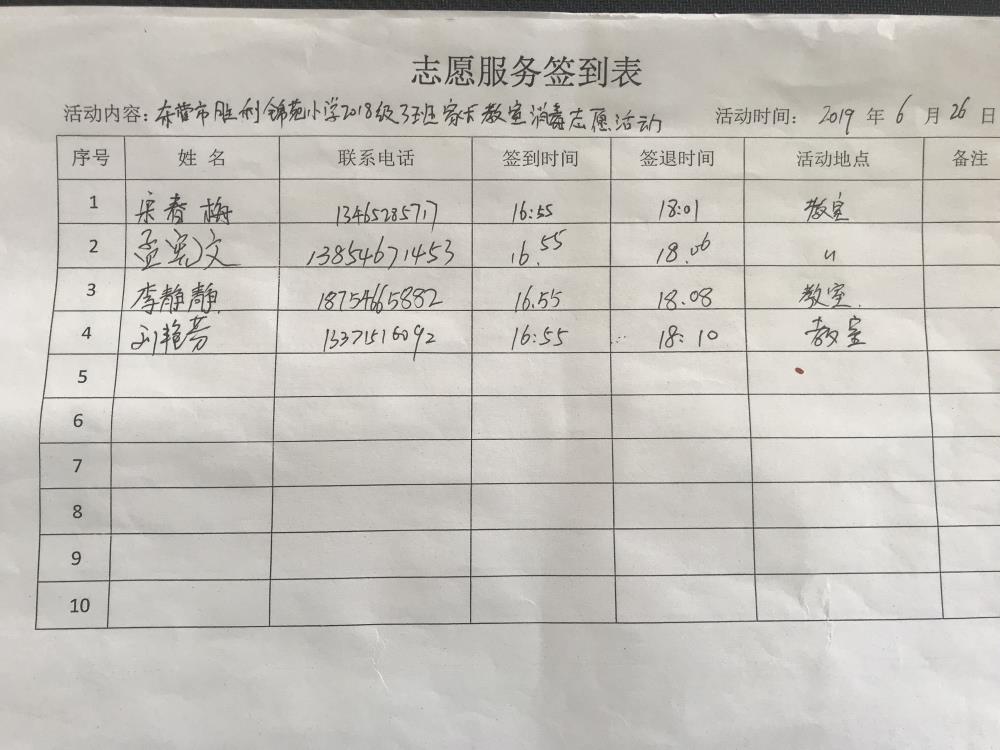 志愿服务签到表
活动内容：东营市胜利锦苑小学2018级3班家长教室消毒志愿活动 活动时间： 2019 年 6 月 26 日
序号 姓名 联系电话 签到时间 签退时间 活动地点 备注
1 春梅 13465285717 16:55 18:01 教室
2 孟宪文 13854671453 16.55 18.06 〃
3 李静静 18754665882 16.55 18.08 教室.
4 刘艳芳 13371516092 16:55 18:10 教室
5
6
7
8
9
10